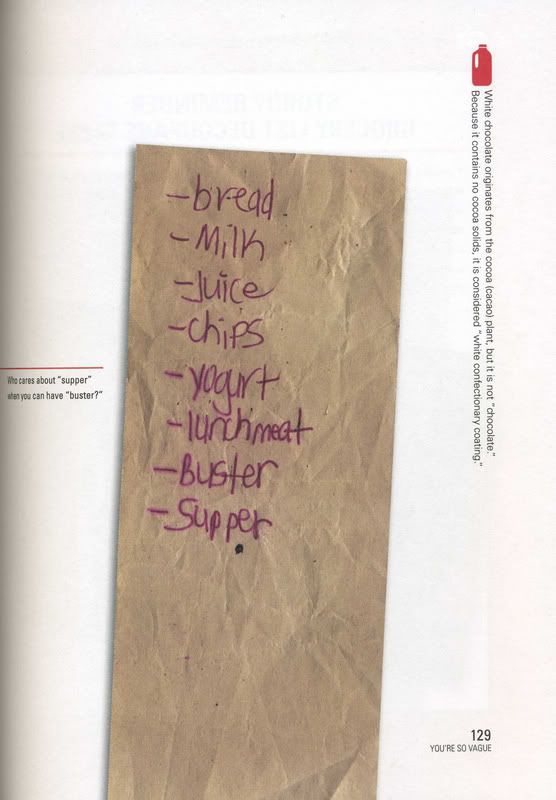 White chocolate originates from the cocoa (cacao) plant, but it is not "chocolate."
Because it contains no cocoa solids, it is considered "white confectionary coating."
-bread
-Milk
-Juice
-chips
-yogurt
-lunchmeat
-Buster
-Supper
Who cares about "supper"
when you can have "buster?"
129
YOU'RE SO VAGUE